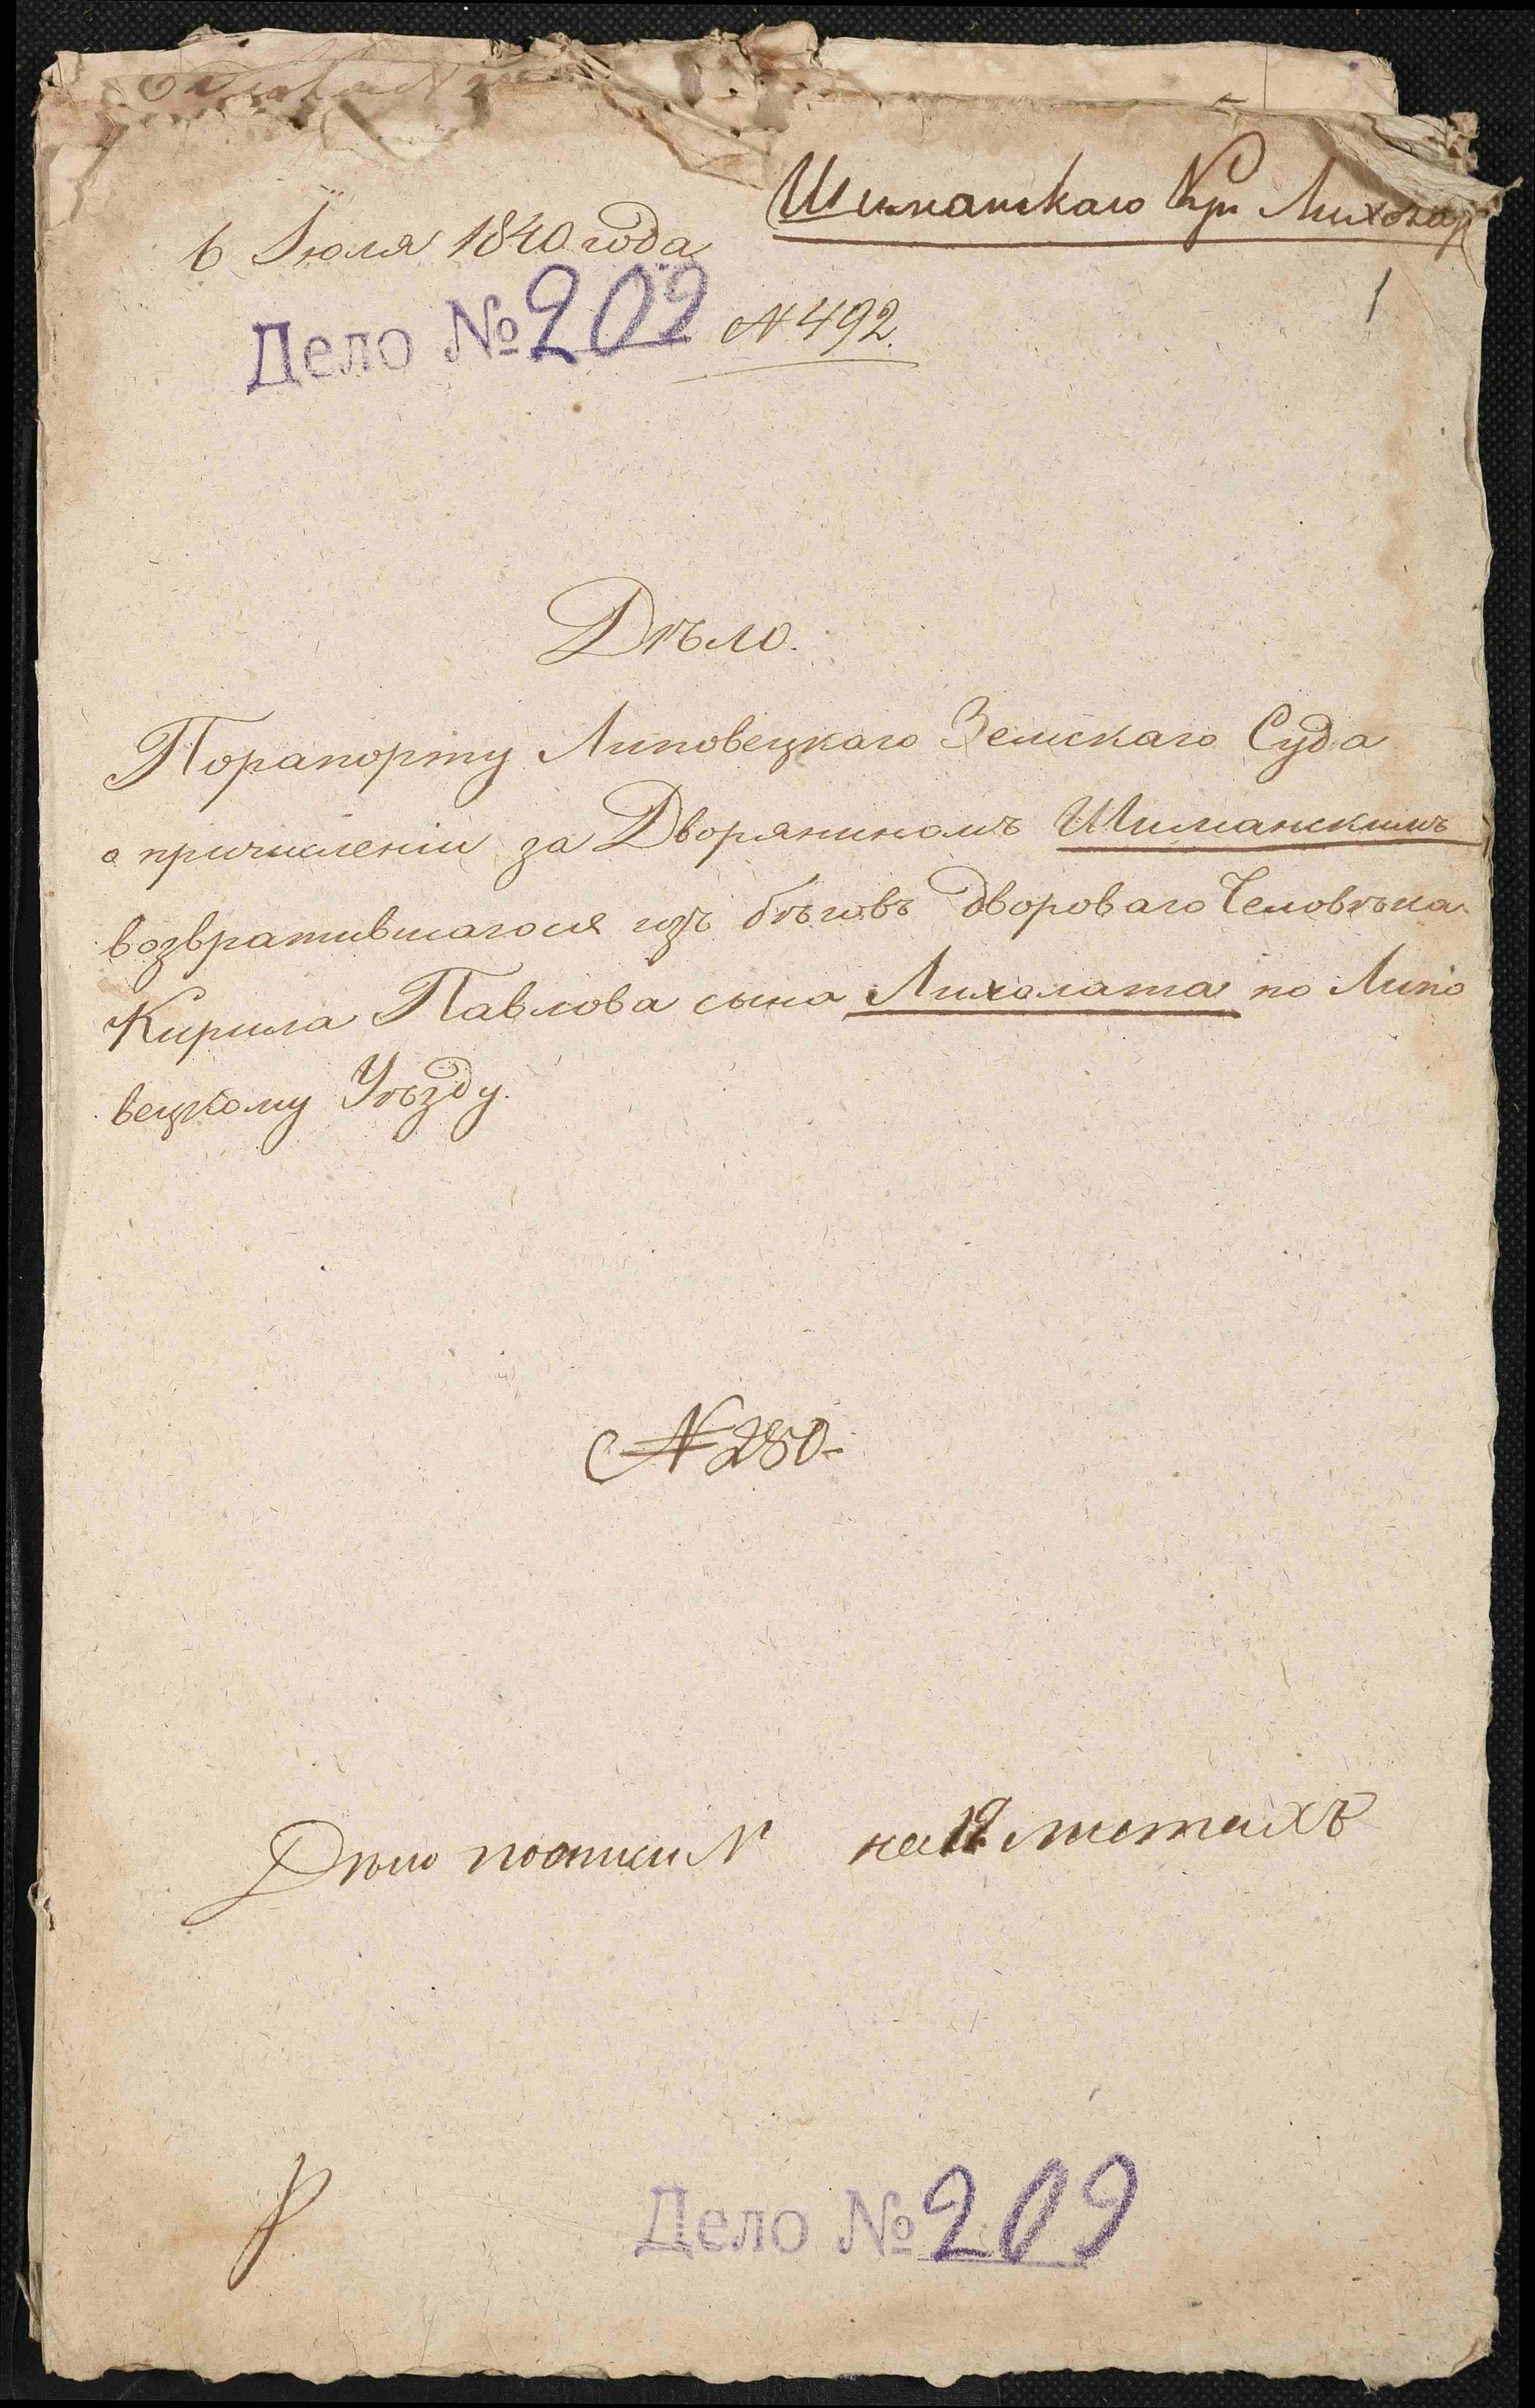 Шиманскаго Кр
6 Іюля 1840 года
1
Дело № 209 № 492.
Дѣло.
Порапорту Липовецкаго Земскаго Суда
о причисленіи за Дворяниномъ Шиманскимъ
возвратившагося изъ бѣговъ дворового Человѣка
Кирила Павлова сына Лихолата по Липо
вецкому Уѣзду.
№ 280.
Дѣло по описи № на 12 листахъ
Дело № 209